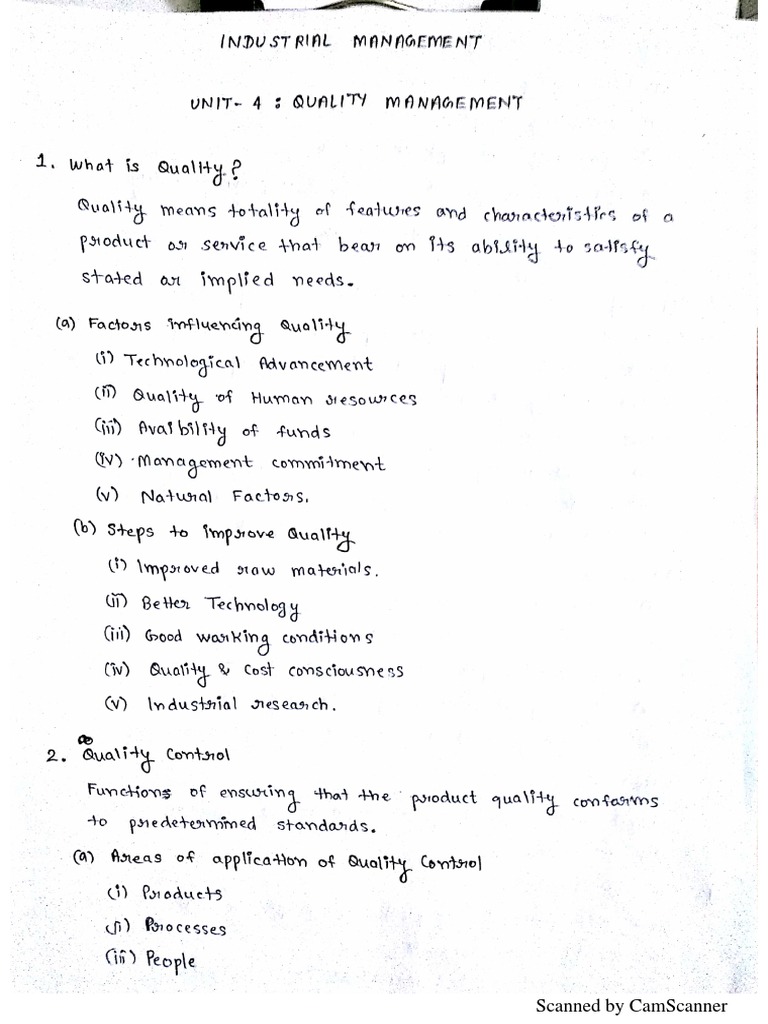 INDUSTRIAL MANAGEMENT
UNIT- 4 : QUALITY MANAGEMENT
1. What is Quality?
Quality means totality of features and characteristics of a
product or service that bear on its ability to satisfy
stated or implied needs.
(a) Factors influencing Quality
(i) Technological Advancement
(ii) Quality of Human resources
(iii) Avaibility of funds
(iv) Management commitment
(v) Natural Factors.
(b) Steps to improve Quality
(i) Improved raw materials.
(ii) Better Technology
(iii) Good working conditions
(iv) Quality & Cost consciousness
(v) Industrial research.
2. Quality Control
Functions of ensuring that the product quality conforms
to predetermined standards.
(a) Areas of application of Quality Control
(i) Products
(ii) Processes
(iii) People
Scanned by CamScanner